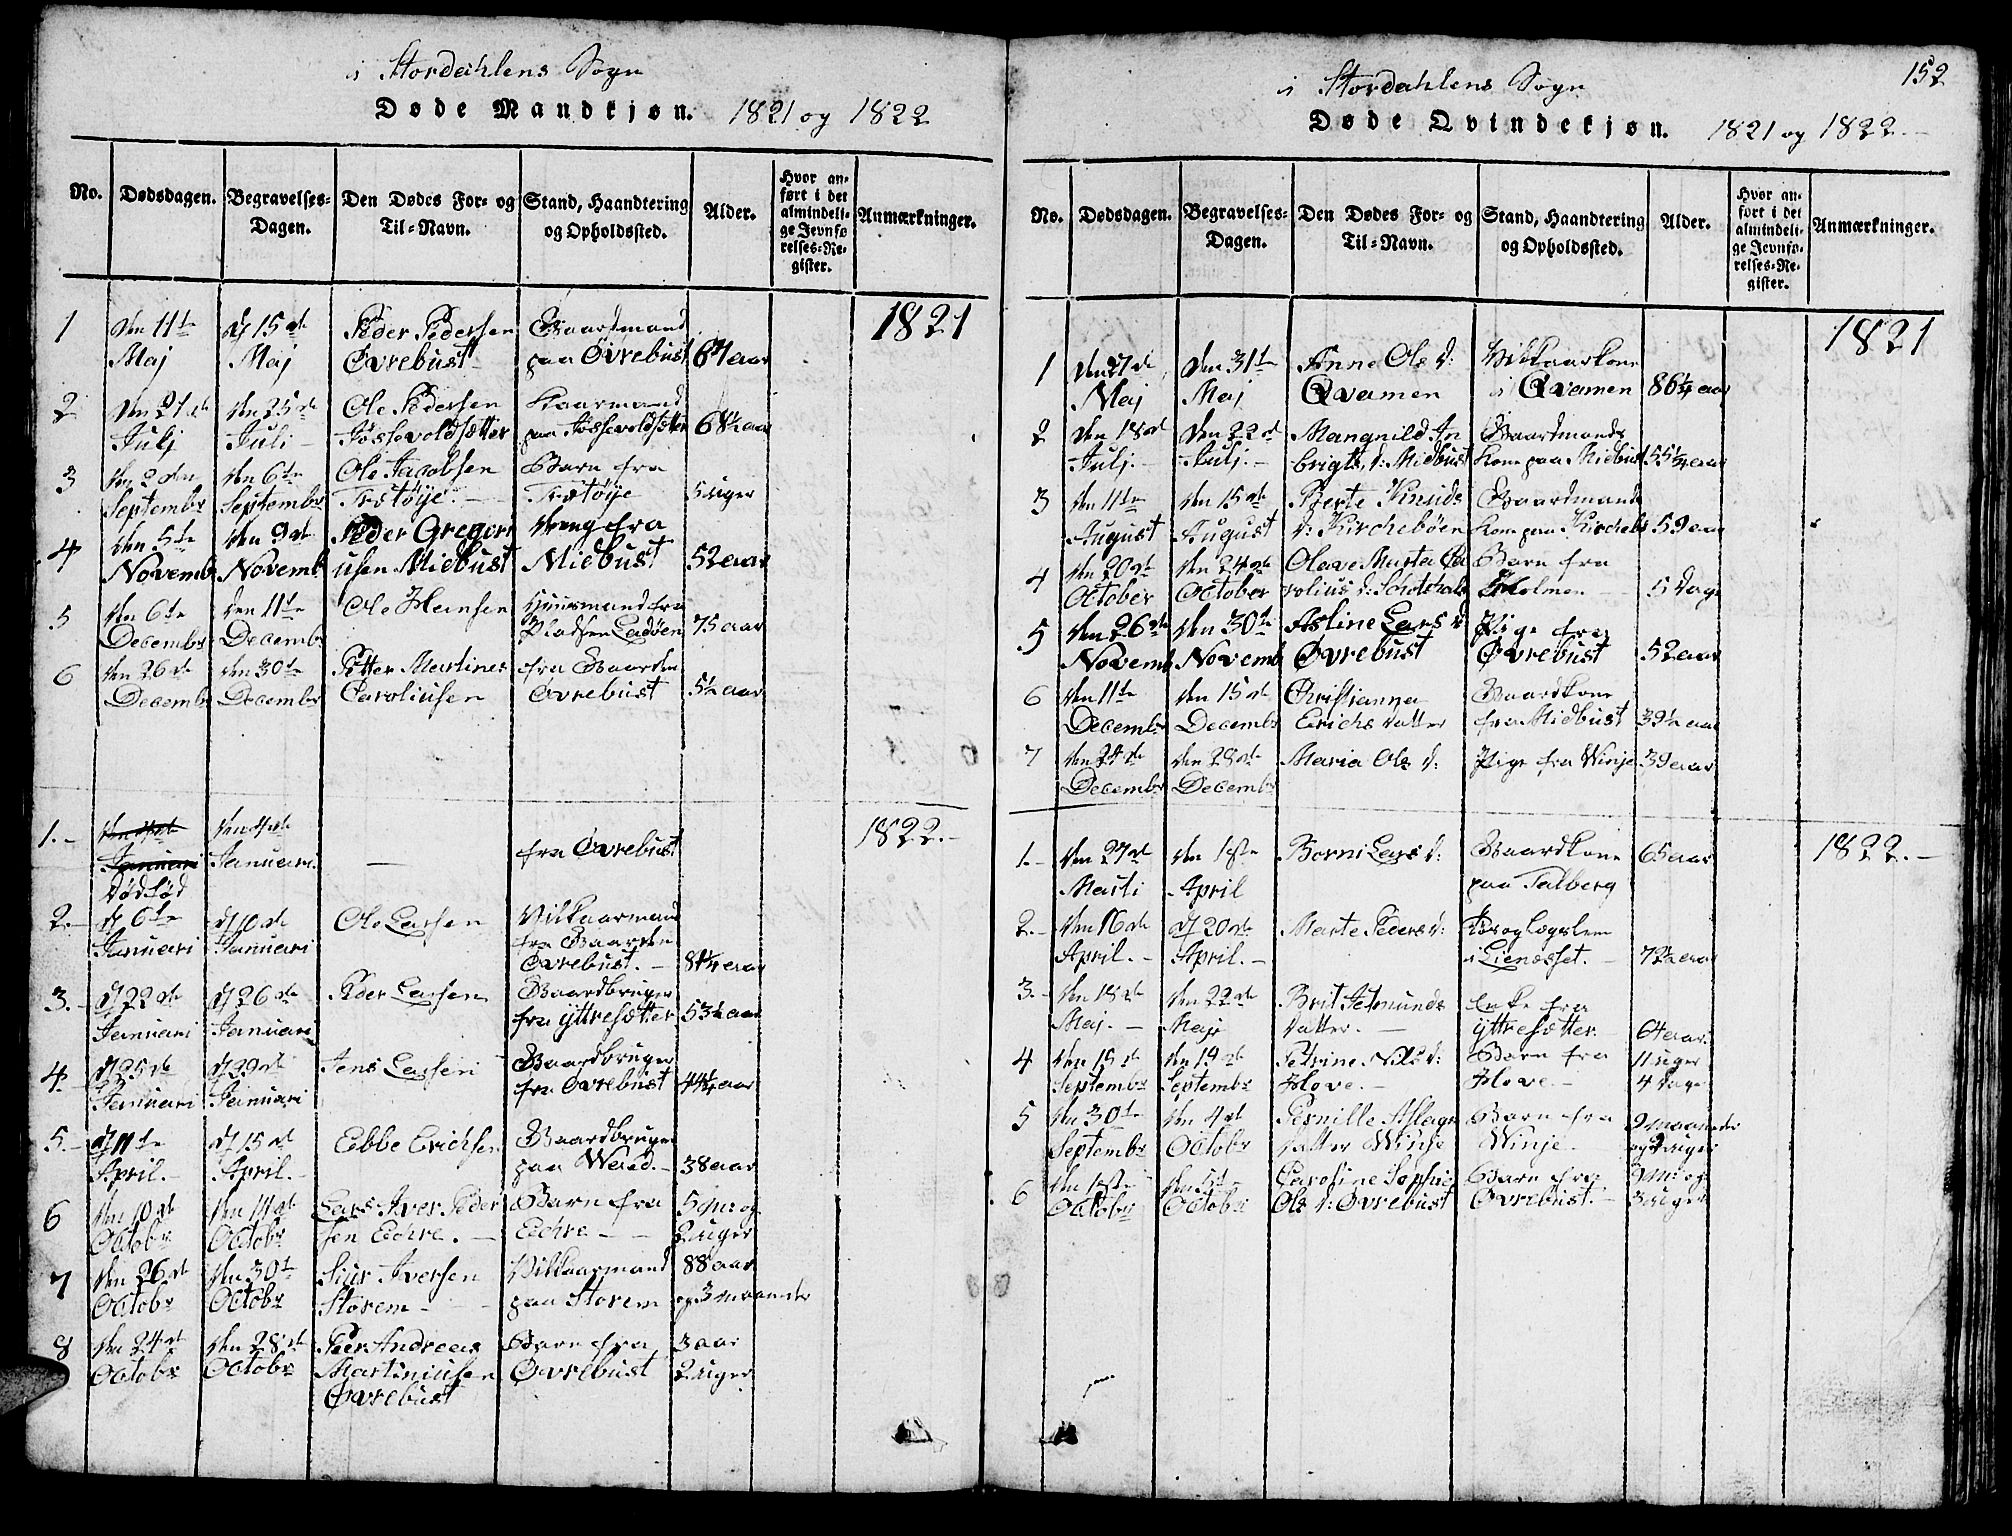 i Stordahlens Sogn
Døde Mandkjøn. 1821 og 1822
No. Dødsdagen. Begravelses-Dagen. Den Dødes For- og Til-Navn. Stand, Haandtering og Opholdssted. Alder. Hvor anført i det almindelige Jevnførelses-Register. Anmærkninger.
1821
1 den 11te d 15de Peder Pedersen Gaardmand
Maj Maj Øvrebust paa Øvrebust 64 aar
2 den 21de den 25de Ole Pedersen Kaarmand
Julj Juli Fossevoldsætter paa Fossevoldsætter 68½ aar
3 den 2den den 6te Ole Jacobsen Barn fra
Septembr Septembr Trøtøye Trøtøye 5 uger
4 den 5te den 9de Peder Gregori Dreng fra
Novemb Novemb usen Midbust Midbust 52 aar
5 den 6te den 11te Ole Hansen Huusmand fra
Decembr Decembr Pladsen Ladøen 75 aar
6 den 26de den 30te Petter Martines fra Gaarden
Decembr Decembr Caroliusen Øvrebust 5½ aar
1822.-
1.- Januari Januari. — fra Øvrebust
Dødfød
2.- d 6te d 10de Ole Larsen Vilkaarmand
Januari Januari fra Gaarden
Øvrebust. - 84¼ aar
3.- d 22de d 26de Peder Larsen Gaardbruger
Januari Januari fra Yttresætter 53½ aar
4.- d 25de d 29de Jens Larsen Gaardbruger
Januari Januari fra Øvrebust 44¼ aar
5.- d 11te d 15de Ebbe Erichsen Gaardbruger
April.- April.- paa Weid.- 38 aar
6 den 10de den 14de Lars Iver Peder Barn fra 5 m: og
Octobr Octobr sen Eidre. - Eidre - 2 uger
7 den 26de den 30te Siur Iversen Vilkaarmand 88 aar
Octobr Octobr Storem - paa Storem og 3 maaneder
8 den 24de den 28de Peer Andreas Barn fra 3 aar
Octobr Octobr Martiniusen Øvrebust 2 uger
Øvrebust
152
i Stordahlens Sogn
Døde Qvindekjøn. 1821 og 1822.-
No. Dødsdagen. Begravelses-Dagen. Den Dødes For- og Til-Navn. Stand, Haandtering og Opholdssted. Alder. Hvor anført i det almindelige Jevnførelses-Register. Anmærkninger.
1821
1 den 27de den 31te Anne Ols d: Vilkaarkone
Maj Maj Qvamen i Qvamen 86¼ aar
2 den 18de den 22de Mangnild In Gaardmands
Julj.- Julj.- brigts d: Midbust Kone paa Midbust 55¼ aar
3 den 11te den 15de Berte Knuds Gaardmands
August August d: Kirchebøen Kone paa Kircheb 59 aar
4 den 20de den 24de Olave Marta Ca Barn fra
October October rolius d: Holmen 5 Dage
5 den 26de den 30te Asline Lars d: Pige fra
Novemb Novemb Øvrebust Øvrebust 52 aar
6 den 11te den 15de Christianna Gaardkone
Decembr Decembr Erichs datter fra Midbust 39½ aar
7 den 24de den 28de Maria Ols d: Pige fra Winje 39 aar
Decembr Decembr
1822.-
1.- den 27de den 1ste Borni Lars d: Gaardkone 65 aar
Marti April paa Talberg
2.- den 16de d 20de Marte Peders d: Lægslem
April.- April.- i Lienæsset.- 72½ aar
3.- den 18de den 22de Brit Jetmunds Enke fra
Maj.- Maji datter.- Yttresætter 64 aar
4 den 15de den 19de Petrine Nils d: Barn fra 11 uger
Septembr Septembr Hove.- Hove.- 4 Dage
5 den 30te den 4de Pernille Aslags Barn fra 2 maaneder
Septembr Octobr datter Winje Winje. og 2 uger
6 den 1ste den 5te Caroline Sophie Barn fra 3 m: og
Octobr Octobr Ols d: Øvrebust Øvrebust.- 3 uger